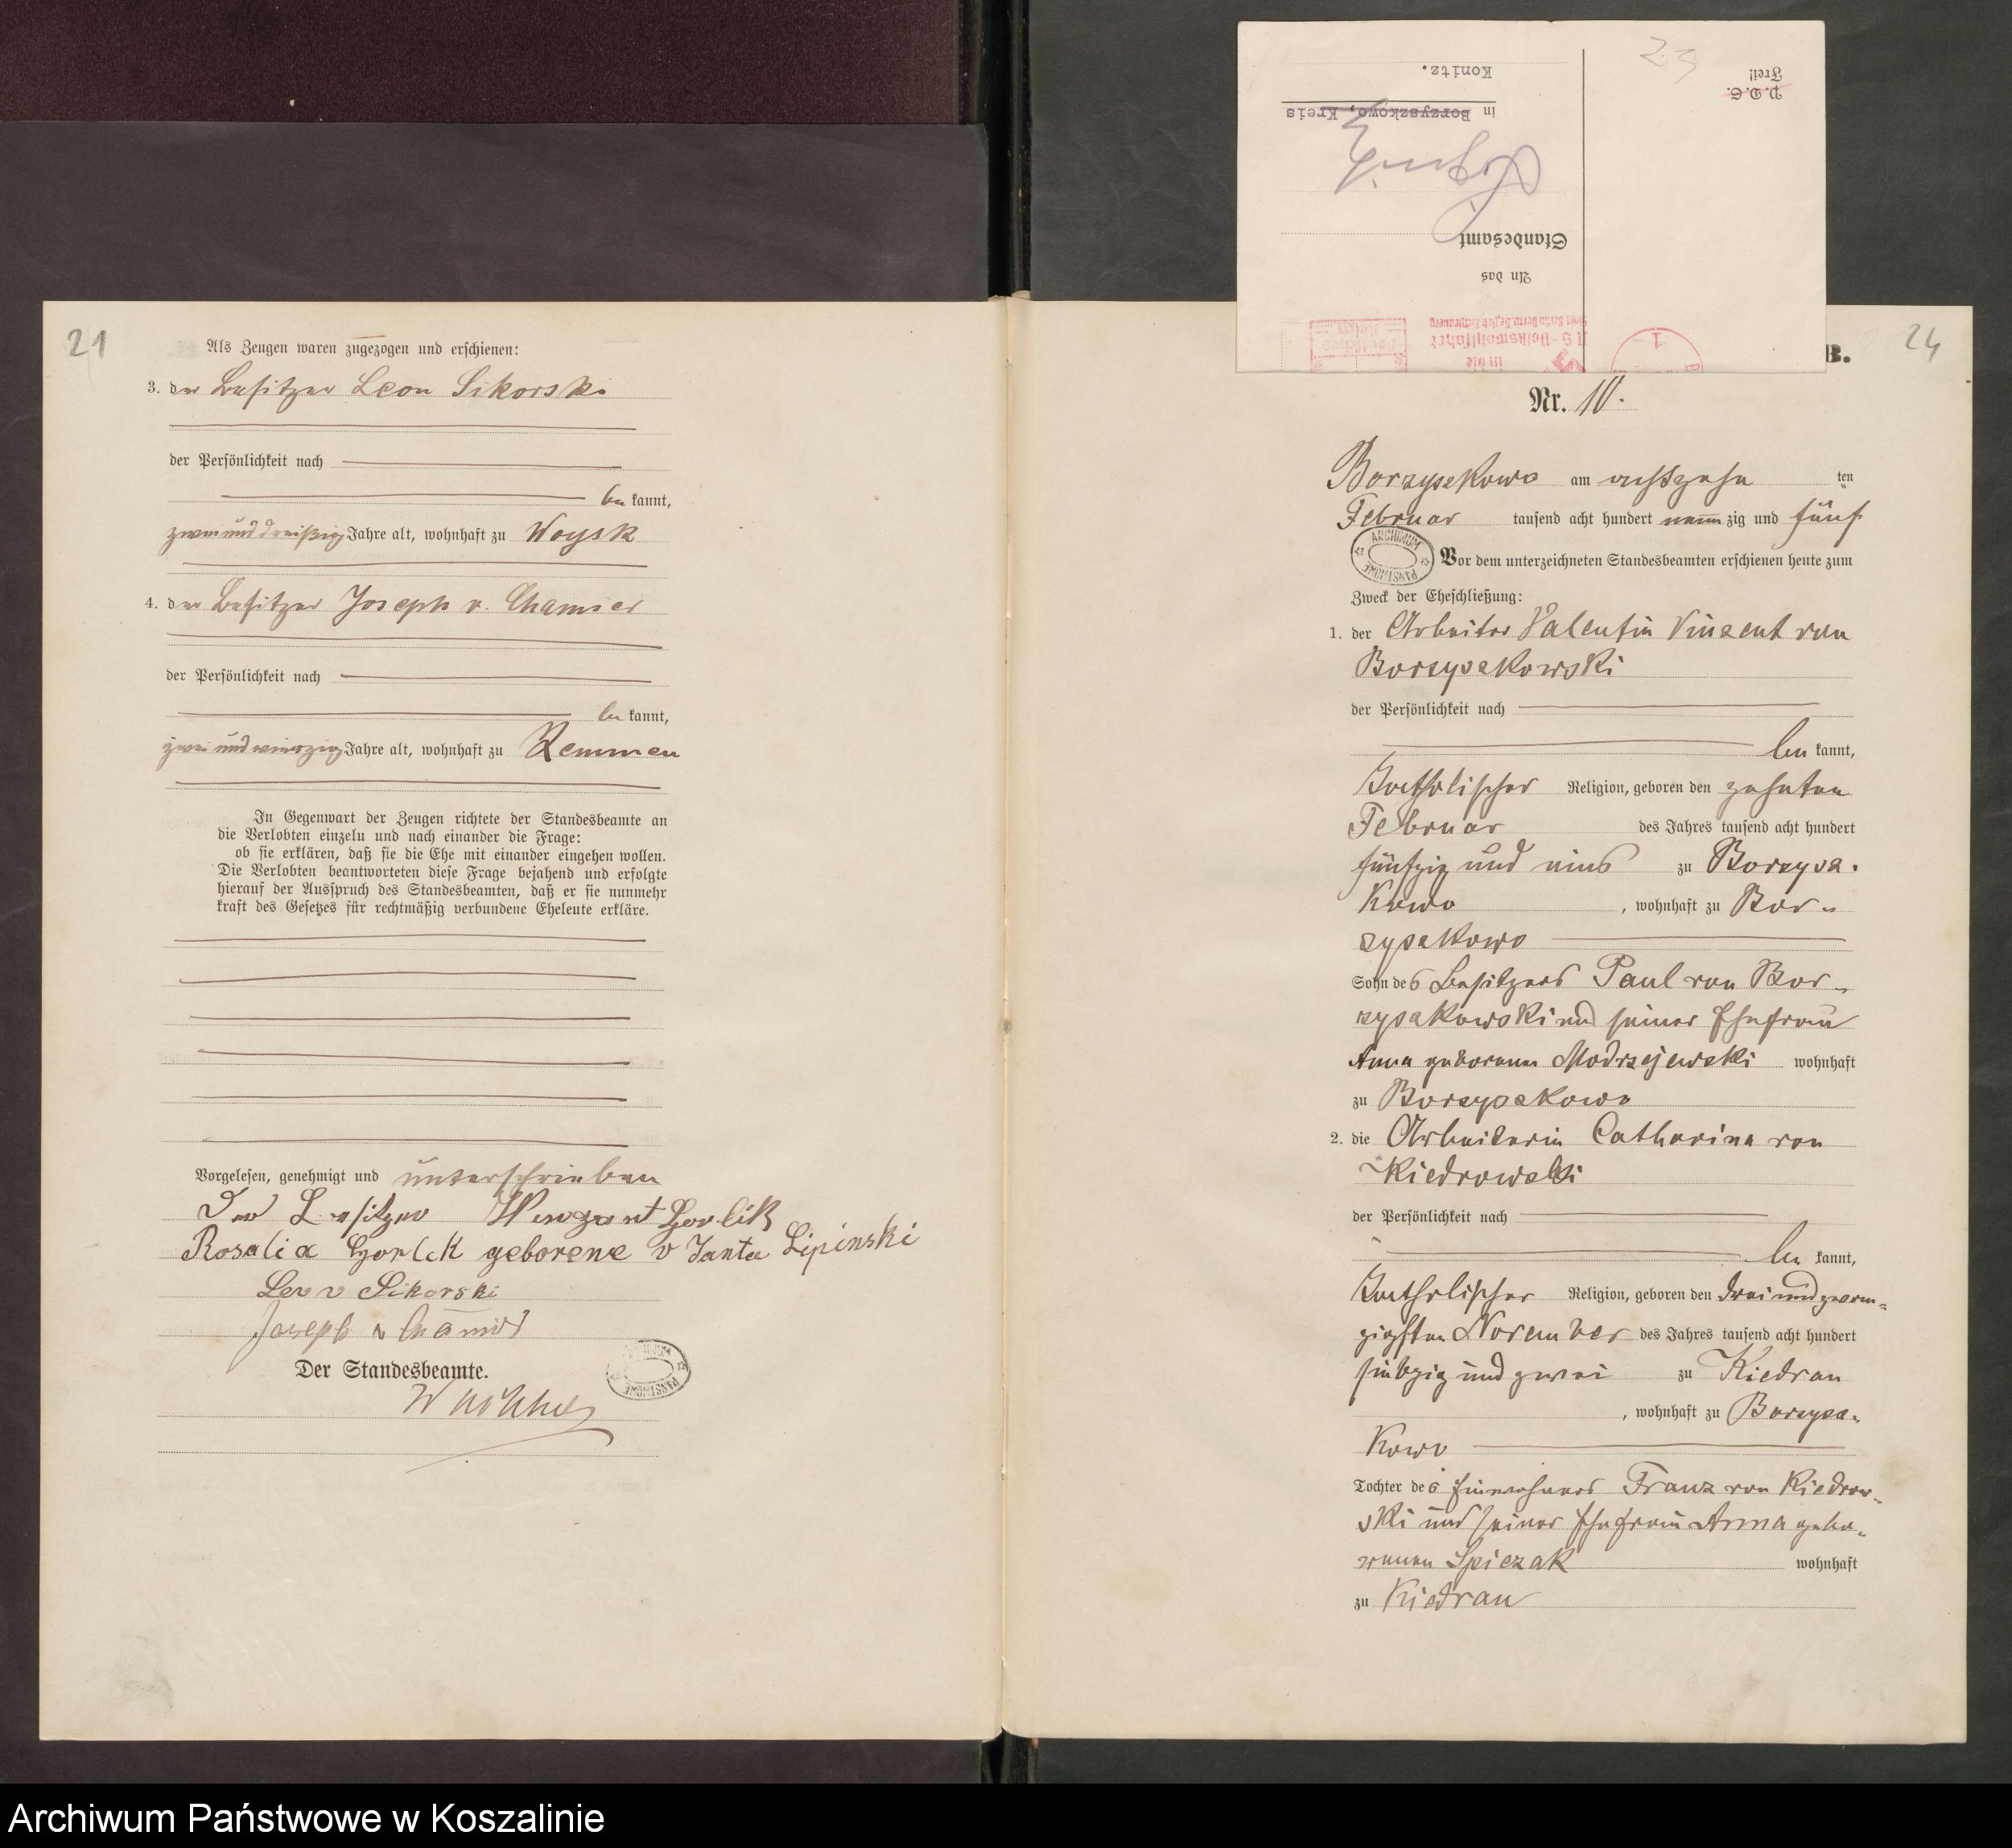 21
Als Zeugen waren zugezogen und erschienen:
3. der Besitzer Leon Sikorski
der Persönlichkeit nach
be kannt,
zweiunddreißig Jahre alt, wohnhaft zu Woysk
4. der Besitzer Joseph v. Chamier
der Persönlichkeit nach
be kannt,
zweiundvierzig Jahre alt, wohnhaft zu Remmen
In Gegenwart der Zeugen richtete der Standesbeamte an
die Verlobten einzeln und nach einander die Frage:
ob sie erklären, daß sie die Ehe mit einander eingehen wollen.
Die Verlobten beantworteten diese Frage bejahend und erfolgte
hierauf der Ausspruch des Standesbeamten, daß er sie nunmehr
kraft des Gesetzes für rechtmäßig verbundene Eheleute erkläre.
Vorgelesen, genehmigt und unterschrieben
Der Besitzer Winzent Gorlik
Rosalia Gorlik geborene v Janta Lipinski
Leon Sikorski
Joseph v Chamier
Der Standesbeamte.
ARCHIWUM PAŃSTWOWE
23
Frei!
P.D.S.
An das
Standesamt
in Borzyszkowo, Kreis
Konitz.
NS-Volkswohlfahrt
Deutsches Reich
1
B.
24
Nr. 10.
Borzyszkowo am achtzehn ten
Februar tausend acht hundert neun zig und fünf
ARCHIWUM PAŃSTWOWE
Vor dem unterzeichneten Standesbeamten erschienen heute zum
Zweck der Eheschließung:
1. der Arbeiter Valentin Vinzent von
Borzyszkowski
der Persönlichkeit nach
be kannt,
katholischer Religion, geboren den zehnten
Februar des Jahres tausend acht hundert
fünfzig und eins zu Borzysz-
kowo, wohnhaft zu Bor-
zyszkowo
Sohn des Besitzers Paul von Bor-
zyszkowski und seiner Ehefrau
Anna geborenen Modrzejewski wohnhaft
zu Borzyszkowo
2. die Arbeiterin Catharina von
Kiedrowski
der Persönlichkeit nach
be kannt,
katholischer Religion, geboren den dreiundzwan-
zigsten November des Jahres tausend acht hundert
siebzig und zwei zu Kiedrau
, wohnhaft zu Borzysz-
kowo
Tochter des Einwohners Franz von Kiedrow-
ski und seiner Ehefrau Anna gebo-
renen Spiczak wohnhaft
zu Kiedrau
Archiwum Państwowe w Koszalinie